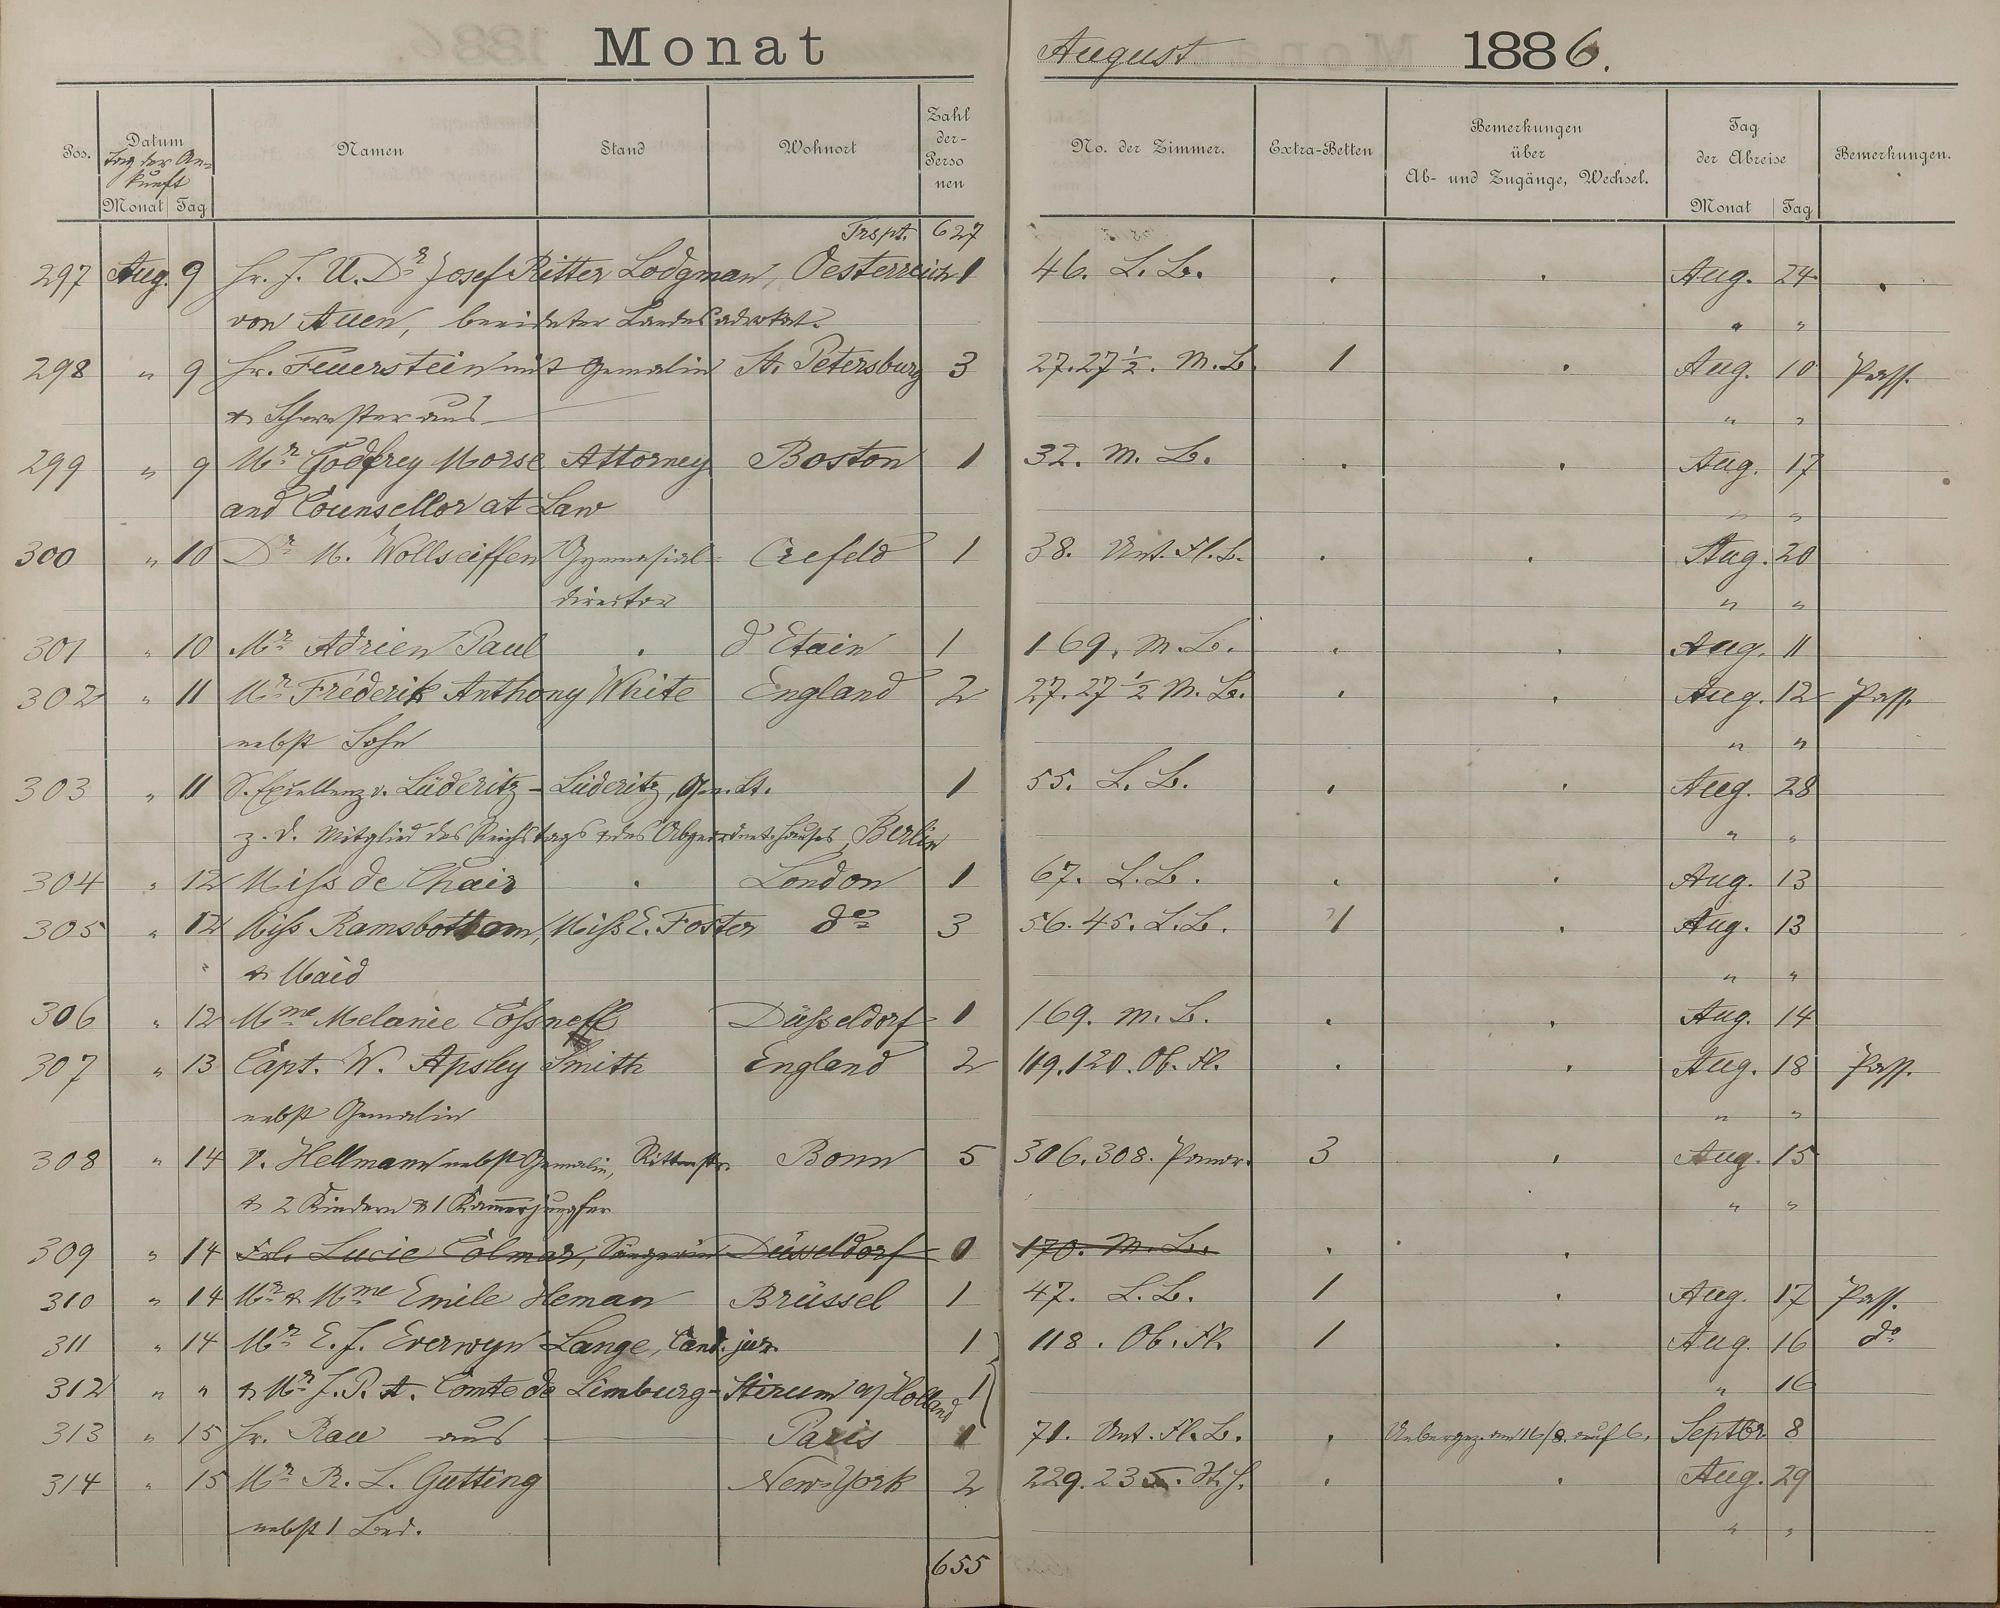 Monat August 1886.
Pos. Datum Namen Stand Wohnort Zahl der Personen No. der Zimmer. Extra-Betten Bemerkungen über Ab- und Zugänge, Wechsel. Tag der Abreise Bemerkungen.
Tag der Ankunft
Monat Tag Monat Tag
Trspt. 627
297 Aug. 9 Hr. J. U. Dr Josef Ritter Lodgman, Oesterreich 1 46. L. B. Aug. 24
von Auen, beeideter Landesadvokat. " "
298 " 9 Hr. Feuerstein mit Gemalin St. Petersburg 3 27.27½. M. B. 1 Aug. 10 Pass.
& Schwester aus " "
299 " 9 Mr Godfrey Morse Attorney Boston 1 32. M. B. Aug. 17
and Counsellor at Law " "
300 " 10 Dr M. Wollseiffen Gymnasial- Crefeld 1 38. Unt. Fl. B. Aug. 20
director " "
301 " 10 Mr Adrien Paul d'Etain 1 169. M. B. Aug. 11
302 " 11 Mr Fréderik Anthony White England 2 27.27½ M. B. Aug. 12 Pass.
nebst Sohn " "
303 " 11 S. Excellenz v. Lüderitz-Lüderitz, Gen. Lt. 1 55. L. B. Aug. 28
z. D. Mitglied des Reichstags & des Abgeordnetenhauses, Berlin " "
304 " 12 Miss de Chair London 1 67. L. B. Aug. 13
305 " 12 Miss Ramsbottom, Miss E. Foster do 3 56.45. L. B. 1 Aug. 13
" & Maid " "
306 " 12 Mme Melanie Cossneff Düsseldorf 1 169. M. B. Aug. 14
307 " 13 Capt. W. Apsley Smith England 2 119.120. Ob. Fl. Aug. 18 Pass.
nebst Gemalin " "
308 " 14 v. Hellmann nebst Gemalin, Rittmstr. Bonn 5 306.308. Panor. 3 Aug. 15
& 2 Kindern & 1 Kammerjungfer " "
309 " 14 Frl. Lucie Colmar, Sängerin Düsseldorf 0 170. M. B.
310 " 14 Mr & Mme Emile Heman Brüssel 1 47. L. B. 1 Aug. 17 Pass.
311 " 14 Mr E. J. Everwyn Lange, Cand. jur. 1 118. Ob. Fl. 1 Aug. 16 do
312 " " & Mr J. P. A. Comte de Limburg-Stirum a/Holland 1 " 16
313 " 15 Hr. Rau aus Paris 1 71. Unt. Fl. B. Uebergez. am 16/8. auf 6. Septbr 8
314 " 15 Mr R. L. Gutting New-York 2 229.235. H. Aug. 29
nebst 1 Bed. " "
655